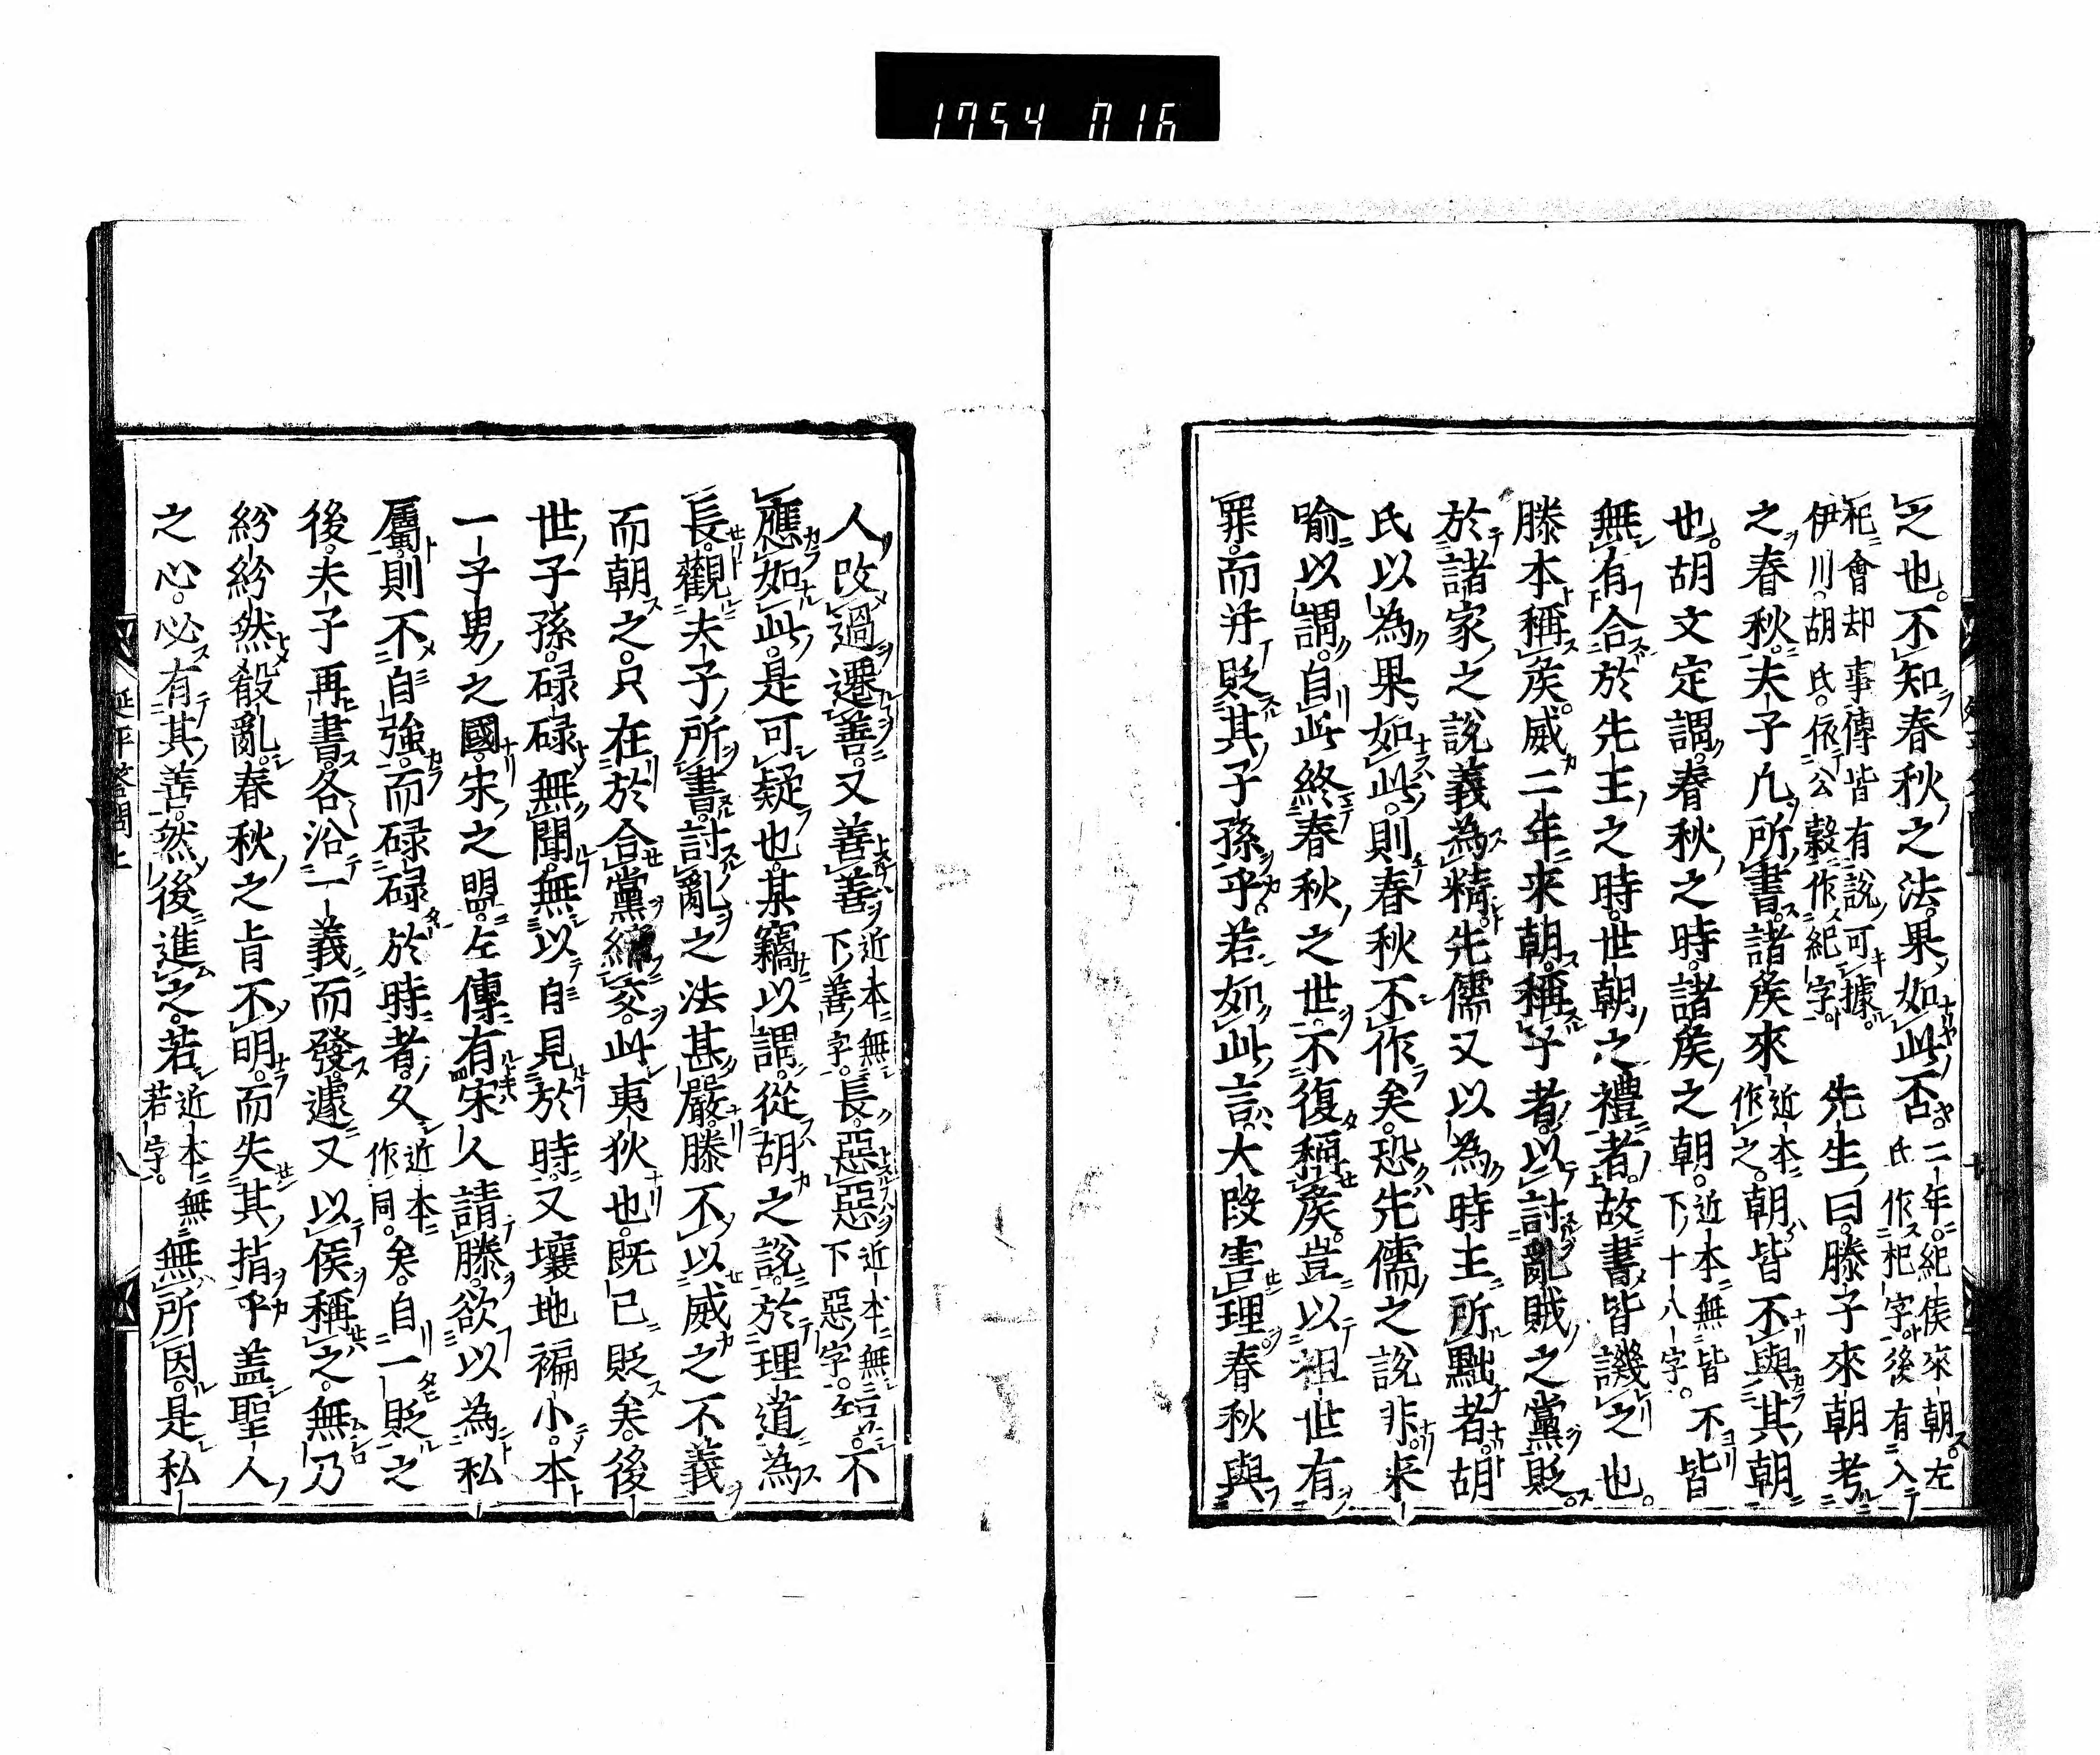 1754 016
之也。不知春秋之法。果如此否。二年。紀侯來朝。左氏作杞字。後有入
杞會却事。傳皆有説可據。伊川。胡氏。依公穀作紀字。先生曰。滕子來朝考
之春秋。夫子凡所書。諸矦來近本作之。朝皆不與其朝
也。胡文定謂。春秋之時。諸矦之朝。近本無皆下十八字。不皆
無有合於先王之時。世朝之禮者。故書皆譏之也。
滕本稱矦。威二年來朝。稱子者。以討亂賊之黨貶。
於諸家之說義為精。先儒又以為時主所黜者。胡
氏以為果如此。則春秋不作矣。恐先儒之說非。来
喻以謂。自此終春秋之世。不復稱矦。豈以祖世有
罪。而并貶其子孫乎。若如此言。大段害理。春秋與
人改過遷善。又善善近本無下善字。長。惡惡近本無下惡字。短。不
應如此。是可疑也。某竊以謂。從胡之說。於理道為
長。觀夫子所書。討亂之法甚嚴。滕不以威之不義
而朝之。只在於合黨締交。此夷狄也。既已貶矣。後
世子孫。碌碌無聞。無以自見於時。又壤地褊小。本
一子男之國。宋之盟。左傳有宋人請滕。欲以為私
屬。則不自強。而碌碌於時者。久近本作同。矣。自一貶之
後。夫子再書。各沿一義而發。遽又以侯稱之。無乃
紛紛然殺亂。春秋之旨不明。而失其指乎。盖聖人
之心。必有其善。然後進之。若近本無若字。無所因。是私
延平答問上 八